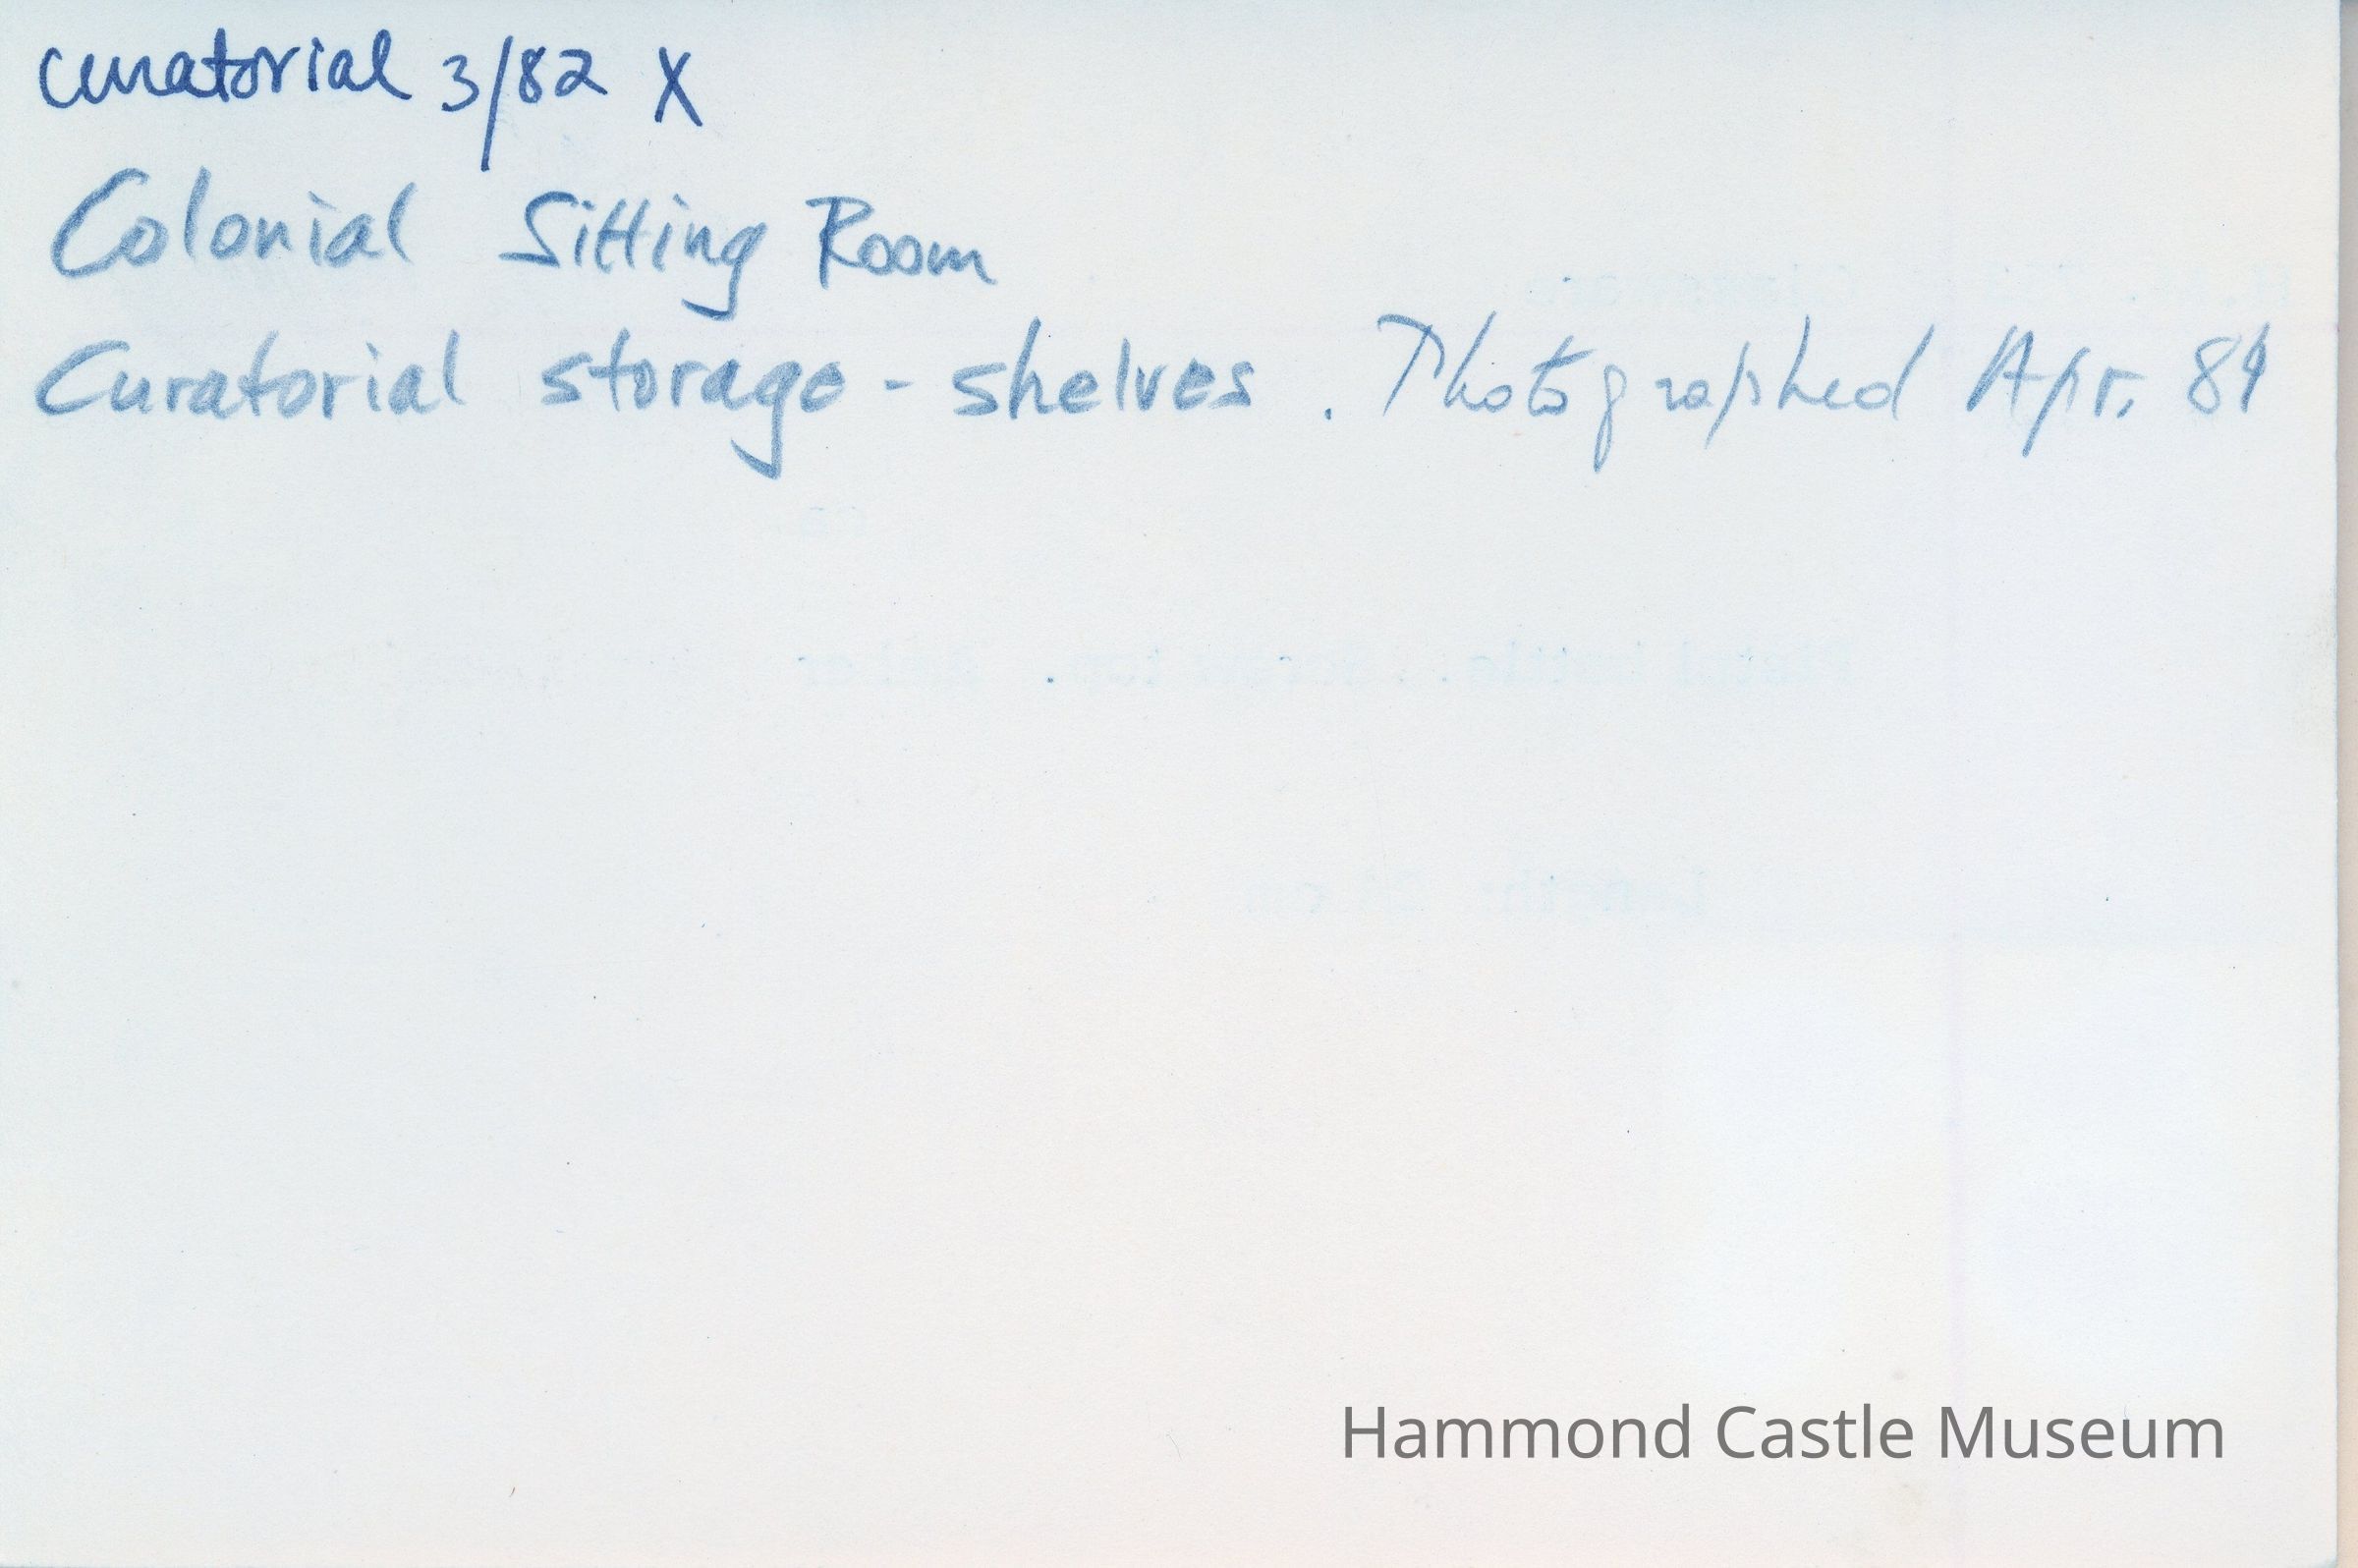 curatorial 3/82 X
Colonial Sitting Room
Curatorial storage - shelves . Photographed Apr. 89
Hammond Castle Museum